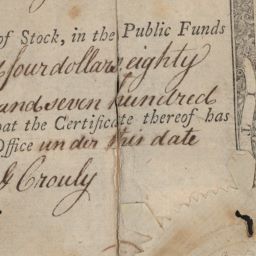 of Stock, in the Public Funds
four dollars. eighty
and seven hundred
that the Certificate thereof has
Office under this date
Crouly